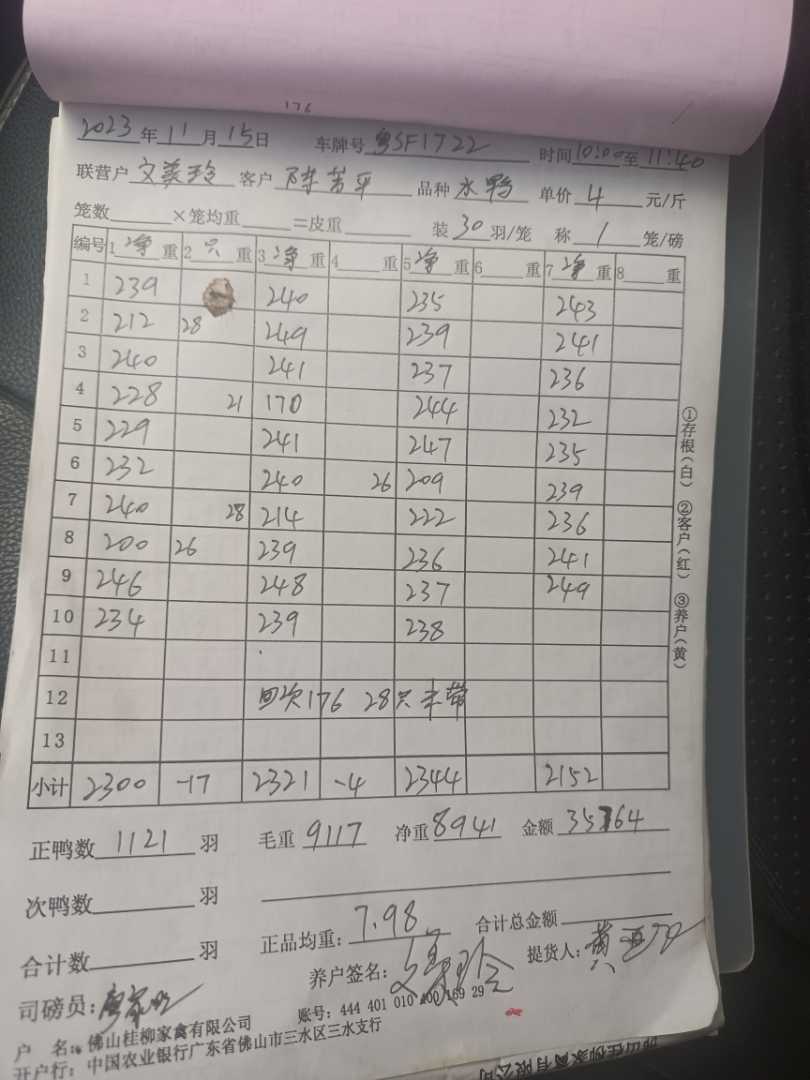 176
2023年11月15日 车牌号粤SF1722 时间10:00至11:40
联营户文葵玲 客户陈芳平 品种水鸭 单价4元/斤
笼数 ×笼均重 =皮重 装30羽/笼 称1笼/磅
编号 1净重 2只重 3净重 4重 5净重 6重 7净重 8重
1 239 240 235 243
2 212 28 249 239 241
3 240 241 237 236
4 228 21 170 244 232
5 229 241 247 235
6 232 240 26 209 239
7 240 28 214 222 236
8 200 26 239 236 241
9 246 248 237 249
10 234 239 238
11
12 回次176 28只未带
13
小计 2300 -17 2321 -4 2344 2152
①存根(白) ②客户(红) ③养户(黄)
正鸭数1121羽 毛重9117 净重8941 金额35764
次鸭数 羽
合计数 羽 正品均重:7.98 合计总金额
司磅员: 养户签名: 提货人:
户 名:佛山桂柳家禽有限公司 账号:444 401 010 400 169 29
开户行:中国农业银行广东省佛山市三水区三水支行
佛山桂柳家禽有限公司